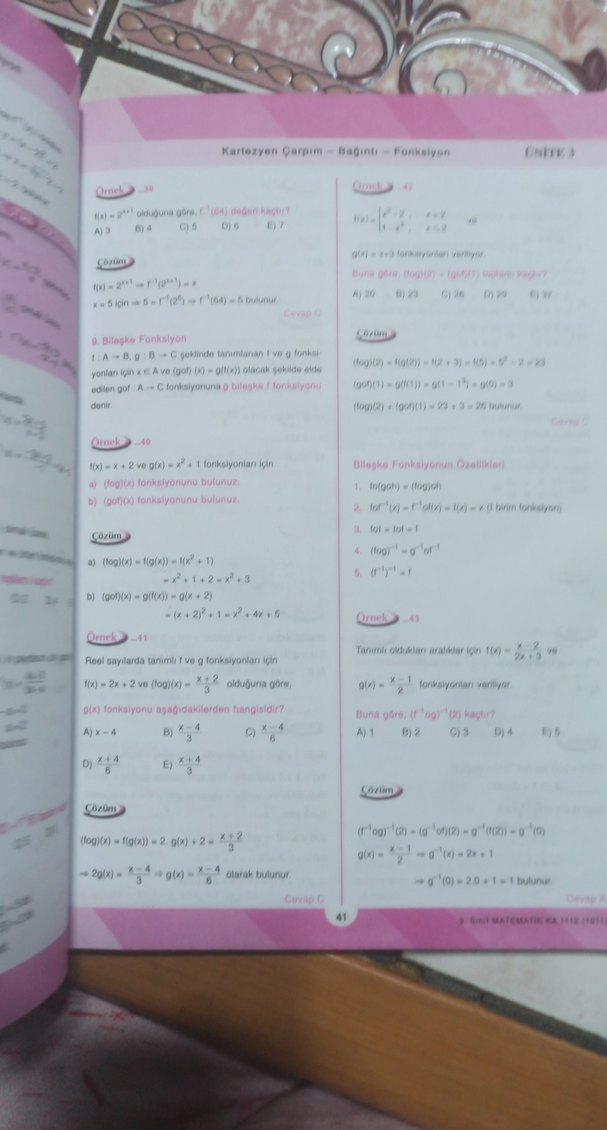 Kartezyen Çarpım – Bağıntı – Fonksiyon
ÜNİTE 3
Örnek ...39
f(x) = 2^(x+1) olduğuna göre, f⁻¹(64) değeri kaçtır?
A) 3 B) 4 C) 5 D) 6 E) 7
Çözüm
f(x) = 2^(x+1) ⇒ f⁻¹(2^(x+1)) = x
x = 5 için ⇒ 5 = f⁻¹(2⁶) ⇒ f⁻¹(64) = 5 bulunur.
Cevap C
9. Bileşke Fonksiyon
f : A → B, g : B → C şeklinde tanımlanan f ve g fonksi-
yonları için x ∈ A ve (gof) (x) = g(f(x)) olacak şekilde elde
edilen gof : A → C fonksiyonuna g bileşke f fonksiyonu
denir.
Örnek ...40
f(x) = x + 2 ve g(x) = x² + 1 fonksiyonları için
a) (fog)(x) fonksiyonunu bulunuz.
b) (gof)(x) fonksiyonunu bulunuz.
Çözüm
a) (fog)(x) = f(g(x)) = f(x² + 1)
= x² + 1 + 2 = x² + 3
b) (gof)(x) = g(f(x)) = g(x + 2)
= (x + 2)² + 1 = x² + 4x + 5
Örnek ...41
Reel sayılarda tanımlı f ve g fonksiyonları için
f(x) = 2x + 2 ve (fog)(x) = (x + 2)/3 olduğuna göre,
g(x) fonksiyonu aşağıdakilerden hangisidir?
A) x – 4 B) (x – 4)/3 C) (x – 4)/6
D) (x + 4)/6 E) (x + 4)/3
Çözüm
(fog)(x) = f(g(x)) = 2. g(x) + 2 = (x + 2)/3
⇒ 2g(x) = (x – 4)/3 ⇒ g(x) = (x – 4)/6 olarak bulunur.
Cevap C
Örnek ...42
f(x) = { x² – 2 , x > 2
1 – x³ , x ≤ 2 ve
g(x) = x+3 fonksiyonları veriliyor.
Buna göre, (fog)(2) + (gof)(1) toplamı kaçtır?
A) 20 B) 23 C) 26 D) 29 E) 32
Çözüm
(fog)(2) = f(g(2)) = f(2 + 3) = f(5) = 5² – 2 = 23
(gof)(1) = g(f(1)) = g(1 – 1³) = g(0) = 3
(fog)(2) + (gof)(1) = 23 + 3 = 26 bulunur.
Cevap C
Bileşke Fonksiyonun Özellikleri
1. fo(goh) = (fog)oh
2. fof⁻¹(x) = f⁻¹of(x) = I(x) = x (I birim fonksiyon)
3. foI = Iof = f
4. (fog)⁻¹ = g⁻¹of⁻¹
5. (f⁻¹)⁻¹ = f
Örnek ...43
Tanımlı oldukları aralıklar için f(x) = (x – 2)/(2x + 3) ve
g(x) = (x – 1)/2 fonksiyonları veriliyor.
Buna göre, (f⁻¹og)⁻¹(2) kaçtır?
A) 1 B) 2 C) 3 D) 4 E) 5
Çözüm
(f⁻¹og)⁻¹(2) = (g⁻¹of)(2) = g⁻¹(f(2)) = g⁻¹(0)
g(x) = (x – 1)/2 ⇒ g⁻¹(x) = 2x + 1
⇒ g⁻¹(0) = 2.0 + 1 = 1 bulunur.
Cevap A
41
9. Sınıf MATEMATİK KA 1112 (1011)